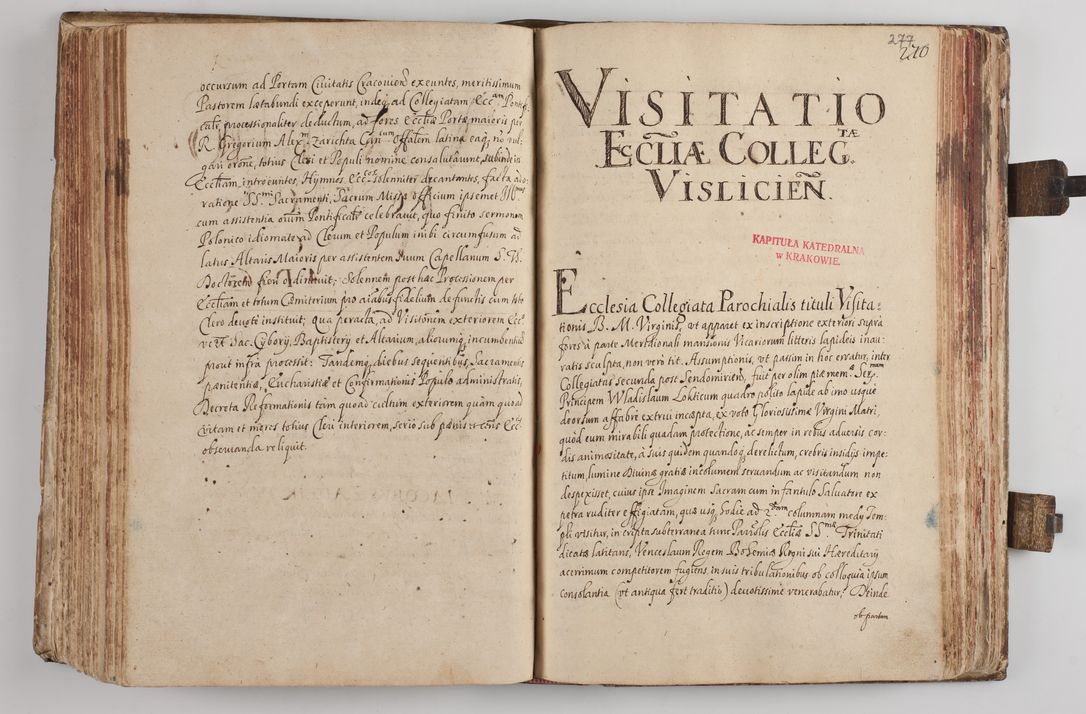 occursum ad Portam Ciuitatis Cracovien̄ exeuntes, meritissimum
Pastorem lætabundi exceperunt, indeq; ad Collegiatam Eccam Pontifi-
calr̄ processionaliter deductum, ad fores Eccliæ Portæ maioris per
R. Gregorium Alexm Zarichta Canum Offālem latina eaq; nō vul-
gari orōne, totius Cleri et Populi nomine consalutauit, subinde in
Eccliam introeuntes, Hymnos decantantes, facta ado-
ratione SSmi Sacramenti, Sacrum Missæ officium ipsemet Illmus
cum assistentia Pontificalr̄ celebrauit, quo finito sermonem
Polonico idiomate ad Clerum et Populum inibi circumfusum ad
latus Altaris Maioris per assistentem suum Capellanum S. Th.
Doctorem fieri ordinauit; Solennem post hac Processionem per
Eccliam et totum Cæmiterium pro aīabus fidelium defunctis cum toto
Clero deuotē instituit; qua peracta, ad Visitōnem exteriorem Eccæ
Sac. Cyborij, Baptisterij et Altarium, aliorumq; incumbentium
prout infra processit: Tandemq; diebus sequentibus, Sacramentis
pænitentiæ, Eucharistiæ et Confirmationis Populo administratis,
Decreta Reformationis tàm quoad cultum exteriorem quàm quoad
vitam et mores totius Cleri interiorem, serio sub pænis et cens. Ecc.
obseruanda reliquit.
277
270
VISITATIO
ECCLIÆ COLLEGTÆ.
VISLICIEN̄.
KAPITUŁA KATEDRALNA
w KRAKOWIE.
Ecclesia Collegiata Parochialis tituli Visita-
tionis B. M. Virginis, vt apparet ex inscriptione exteriori supra
fores à parte Meridionali mansionis Vicariorum litteris lapideis inau-
ratis sculpta, non verò tit. Assumptionis, vt passim in hoc erratur, inter
Collegiatus secunda post Sendomirien̄, fuit per olim piæ memæ Sermam
Principem Wladislaum Lokticum quadro polito lapide ab imo usque
deorsum affabrè extrui incæpta, ex voto Gloriosissimæ Virgini Matri,
quòd eum mirabili quadam protectione, ac semper in rebus aduersis cor-
dis animositate, à suis quidem quandoq; derelictum, crebris insidijs impe-
titum, lumine Diuinæ gratiæ incolumem seruandum ac visitandum non
despexisset, cuius ipse Imaginem Sacram cum infantulo Saluatore ex
petra ruditer effigiatam, quæ usq; hodie ad 2dam columnam medij Tem-
pli visitur, in cripta subterranea tunc Paruulis Eccliæ SSmæ Trinitati
dicatæ latitans, Venceslaum Regem Bohemiæ Regni sui Hæreditarij
acerrimum competitorem fugiens, in suis tribulationibus ob colloquia ipsum
consolantia (vt antiqua fert traditio) deuotissimè venerabatur. Deinde
ob partam